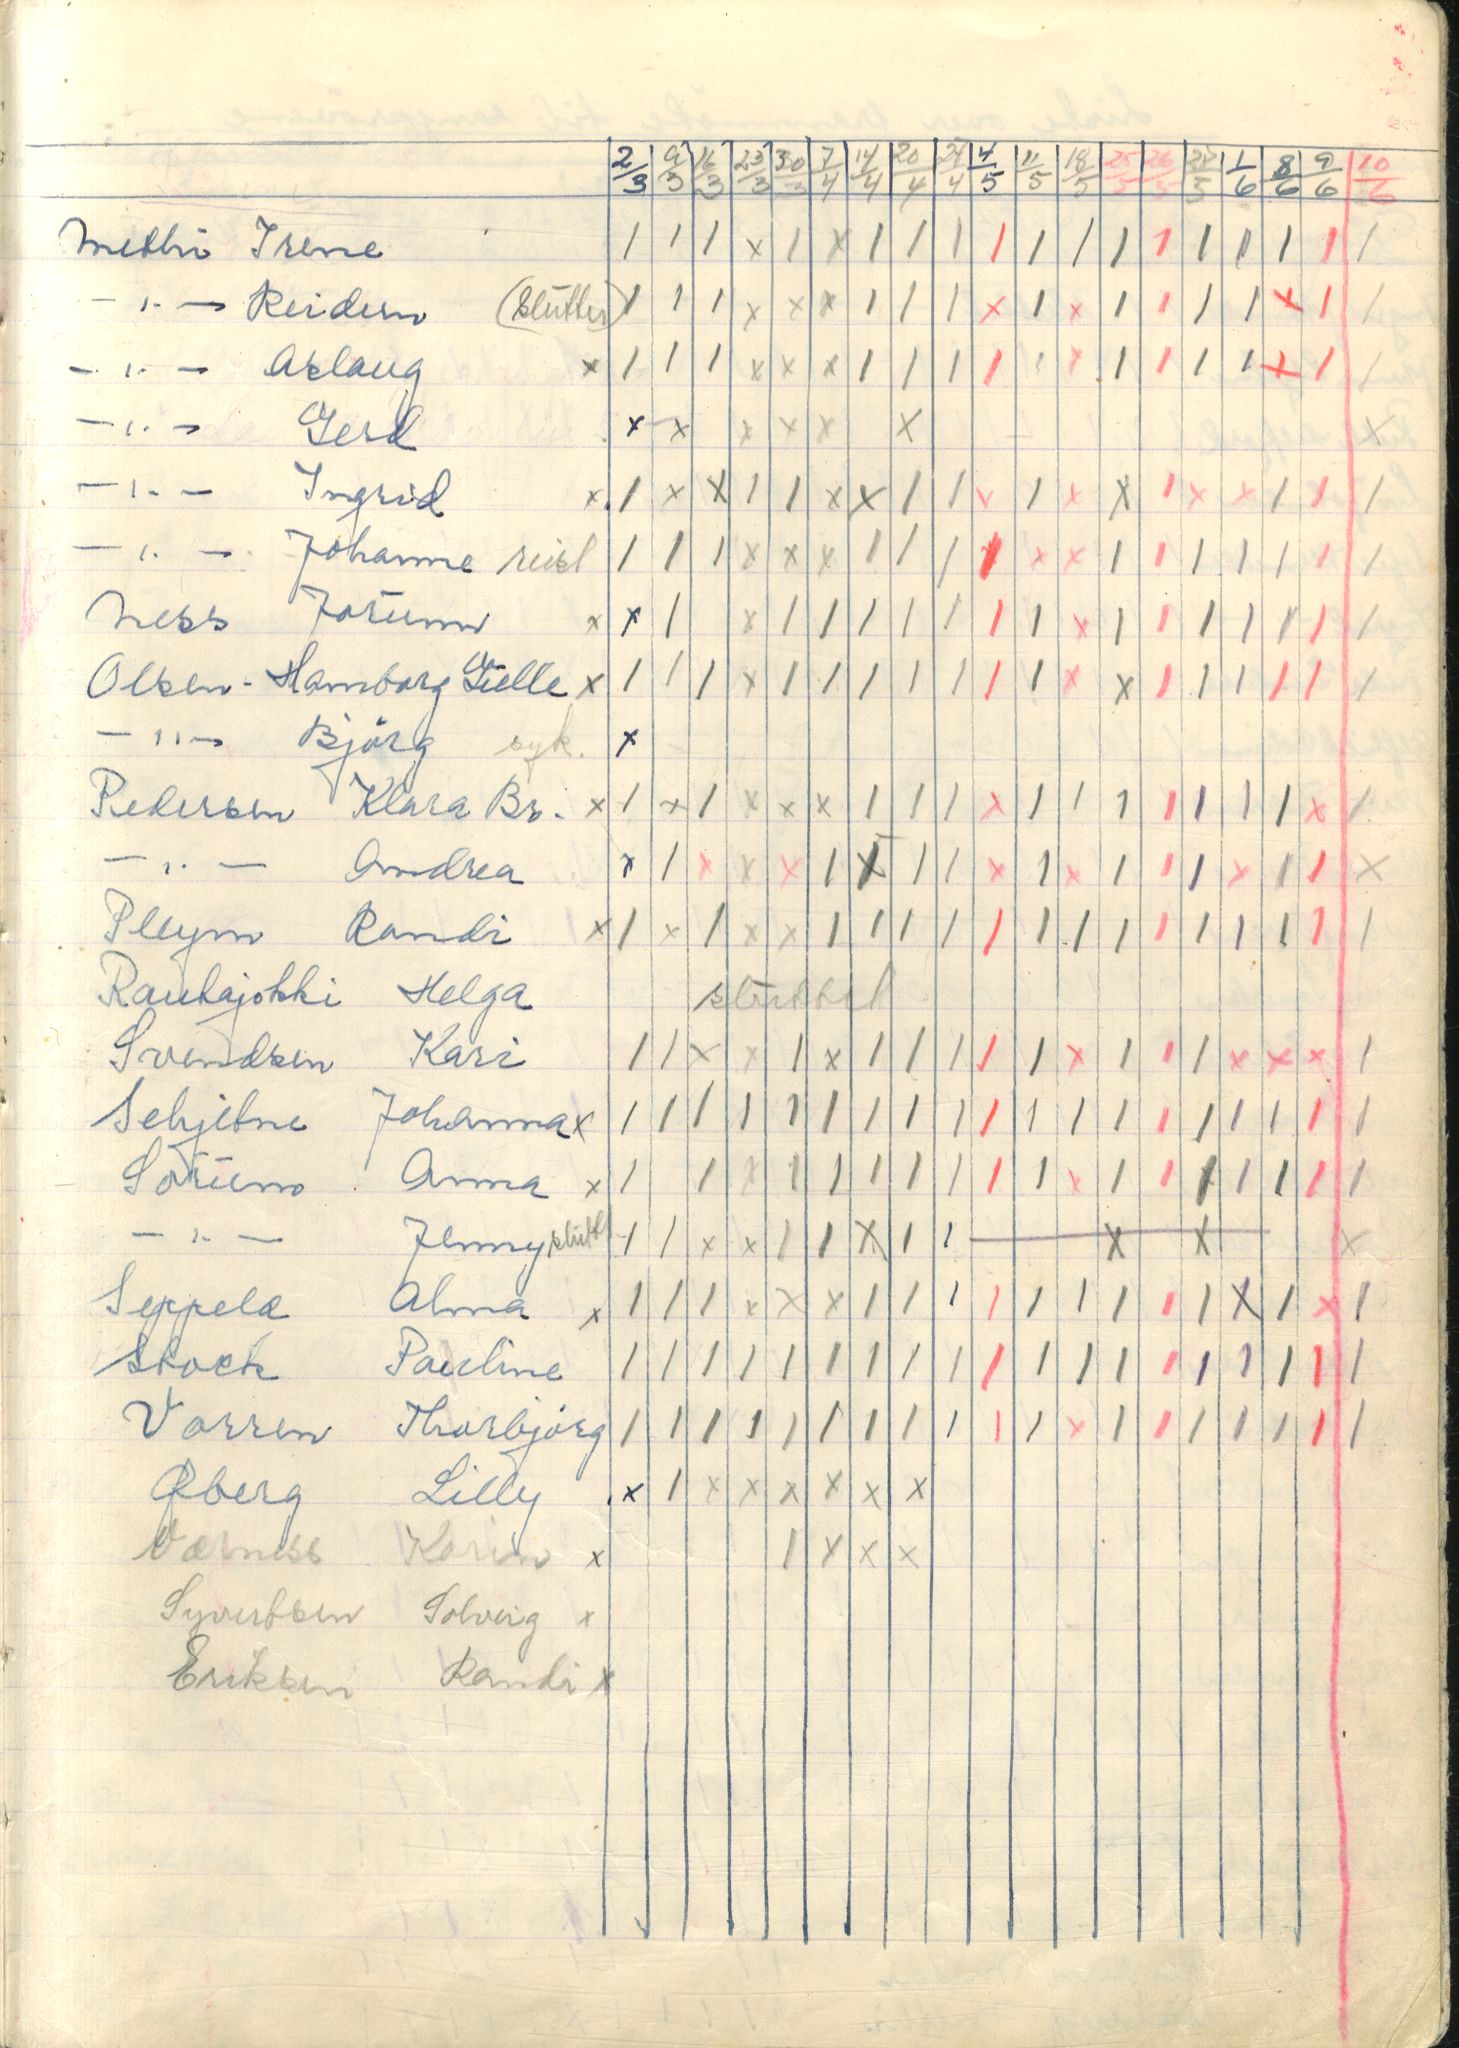 2/3 9/3 16/3 23/3 30/3 7/4 14/4 20/4 27/4 4/5 11/5 18/5 25/5 26/5 1/6 8/6 9/6 10/6
Methi Irene / / / x / x / / / / / / / / / / / / /
-"- Reidun (slutter) / / / x x x / / / x / x / / / / x / /
-"- Aslaug x / / / x x x / / / / / x / / / / x / /
-"- Gerd x x x x x x x
-"- Ingrid x / x x / / x x / / x / x x / x x / / /
-"- Johanne reist / / / x x x / / / / x x / / / / / / /
Ness Jorunn x x / x / / / / / / / x / / / / / / /
Olsen-Hamborg Gülle x / / / x / / / / / / / x x / / / / / /
-"- Bjørg syk. x
Pedersen Klara Br. x / x / x x x / / / x / / / / / / / x /
-"- Andrea x / x x x / x / / x / x / / / x / / x
Pleym Randi x / x / x x / / / / / / / / / / / / / /
Rautajokki Helga sluttet
Svendsen Kari / / x x / x / / / / / x / / / x x x /
Schjetne Johanna x / / / / / / / / / / / / / / / / / / /
Sørum Anna x / / x / / / / / / / x / / / / / / /
-"- Jenny slutt / / x x / / x / / x x x
Seppelä Alma x / / / x x x / / / / / / / / / x / x /
Stock Pauline / / / / / / / / / / / / / / / / / / /
Vorren Thorbjørg / / / / / / / / / / / x / / / / / / /
Øberg Lilly x / x x x x x x
Værness Karin x / x x x
Syvertsen Solveig x
Eriksen Randi x